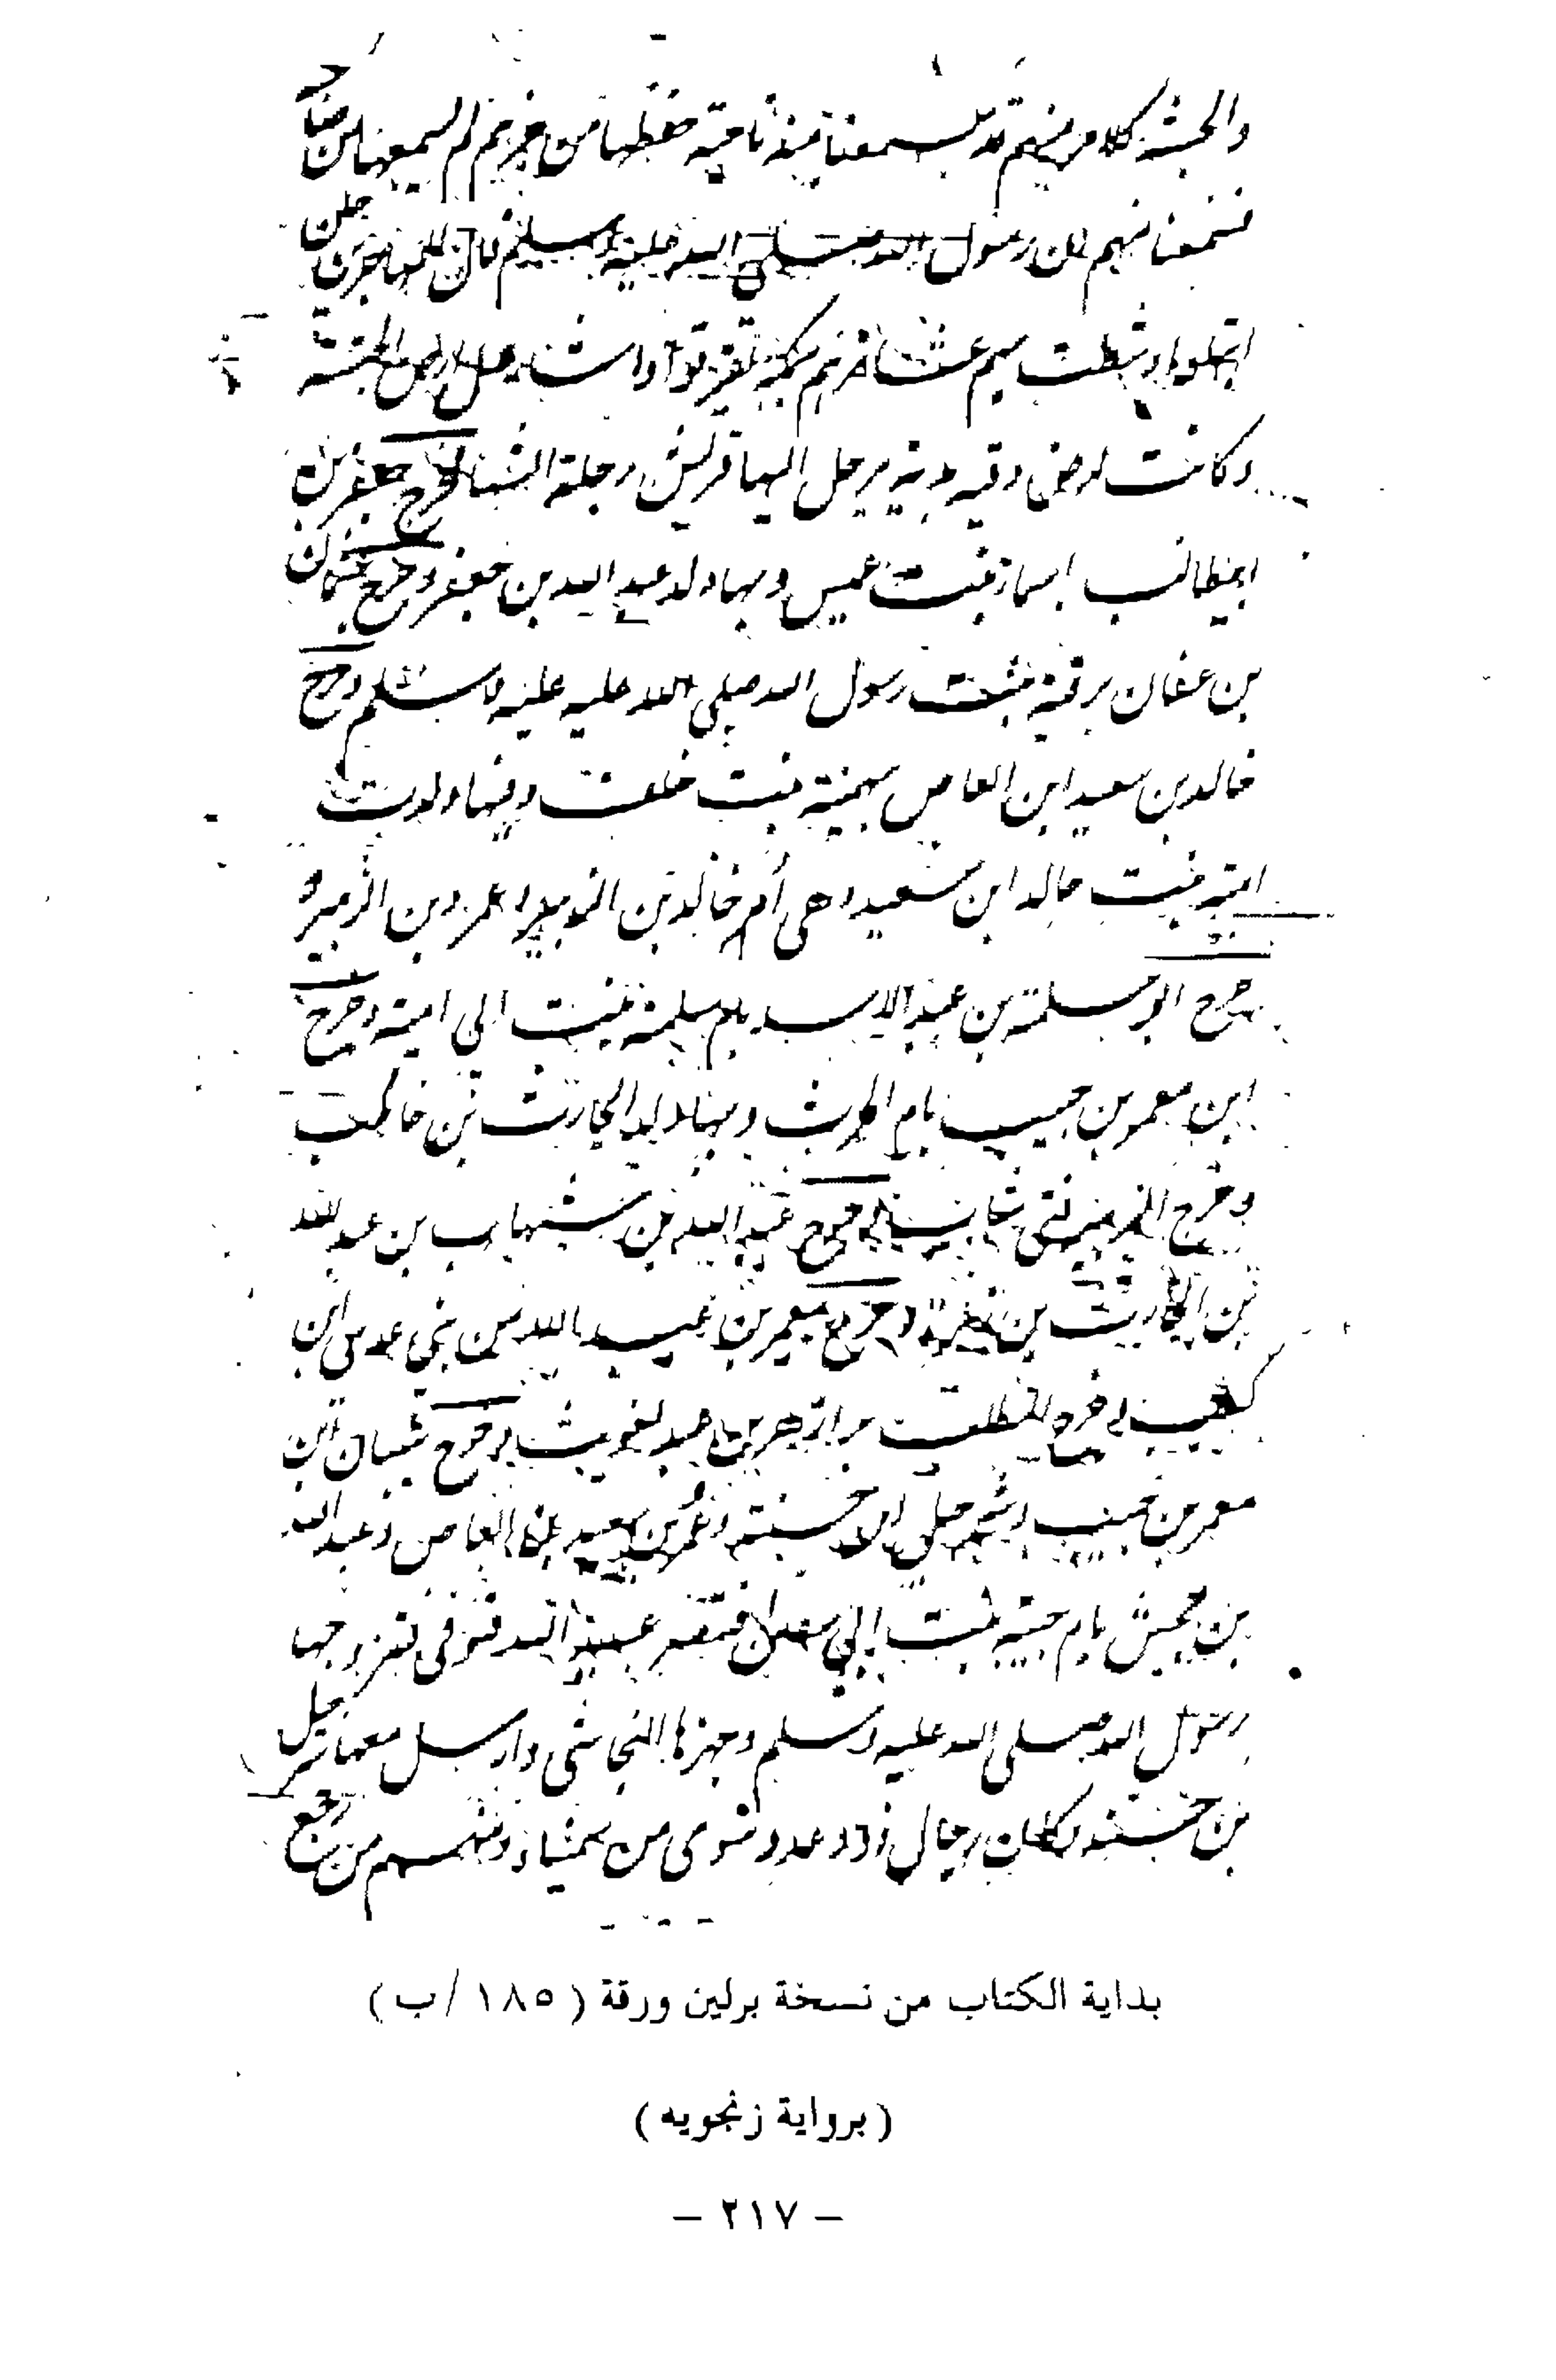 والحبشة كلا منهم قد سمعنا منه ناحية حفظها من لم يسمعها من
فسمعنا منهم ان رسول الله صلى الله عليه وسلم قال للمهاجرين حين
بهم عشائرهم بمكة تفرقوا واشار قبل ارض الحبشة
وكانت ارض دفيه يرحل اليها قريش رحلة الشتا فخرج جعفر بن
ابيطالب اسما بنت عميس وبها ولد عبد الله بن جعفر وخرج عثمان
بن عفان برقية بنت رسول الله صلى الله عليه عليه وسلم وخرج
خالد بن سعيد ابن العاص بنت خلف وفيها ولدت
امة بنت خالد ابن سعيد وهي أم خالد بن الزبير وعمرو بن الزبير و
خرج ابو سلمة بن عبد الاسد بام سلمة بنت ابي امية وخرج
ابن معمر بن حبيب بام الحرث وبها ولد الحارث بن حاطب
وخرج الزبير فتى شابا وخرج عبد الله بن شهاب بن عبد الله
بن الحارث بن زهرة وخرج معمر بن عبد الله من بني عدي ابن
كعب وخرج المطلب بن ازهر بن عبد لغوث وخرج سفيان ابن
معمر بن حبيب وشرحبيل ابن حسنة وعمرو بن سعيد بن العاص وعبد الله
بن جحش بام حبيبة بنت ابي سفيان عبيد الله فتوفى فتزوجها
رسول الله صلى الله عليه وسلم وجهزها النجاشي وارسل معها شرحبيل
بن حسنة وكان رجال ذوو عدد سوى من سمينا ومنهم من رجع
بداية الكتاب من نسخة برلين ورقة ( ١٨٥ /ب )
( برواية زنجويه )
– ٢١٧ –